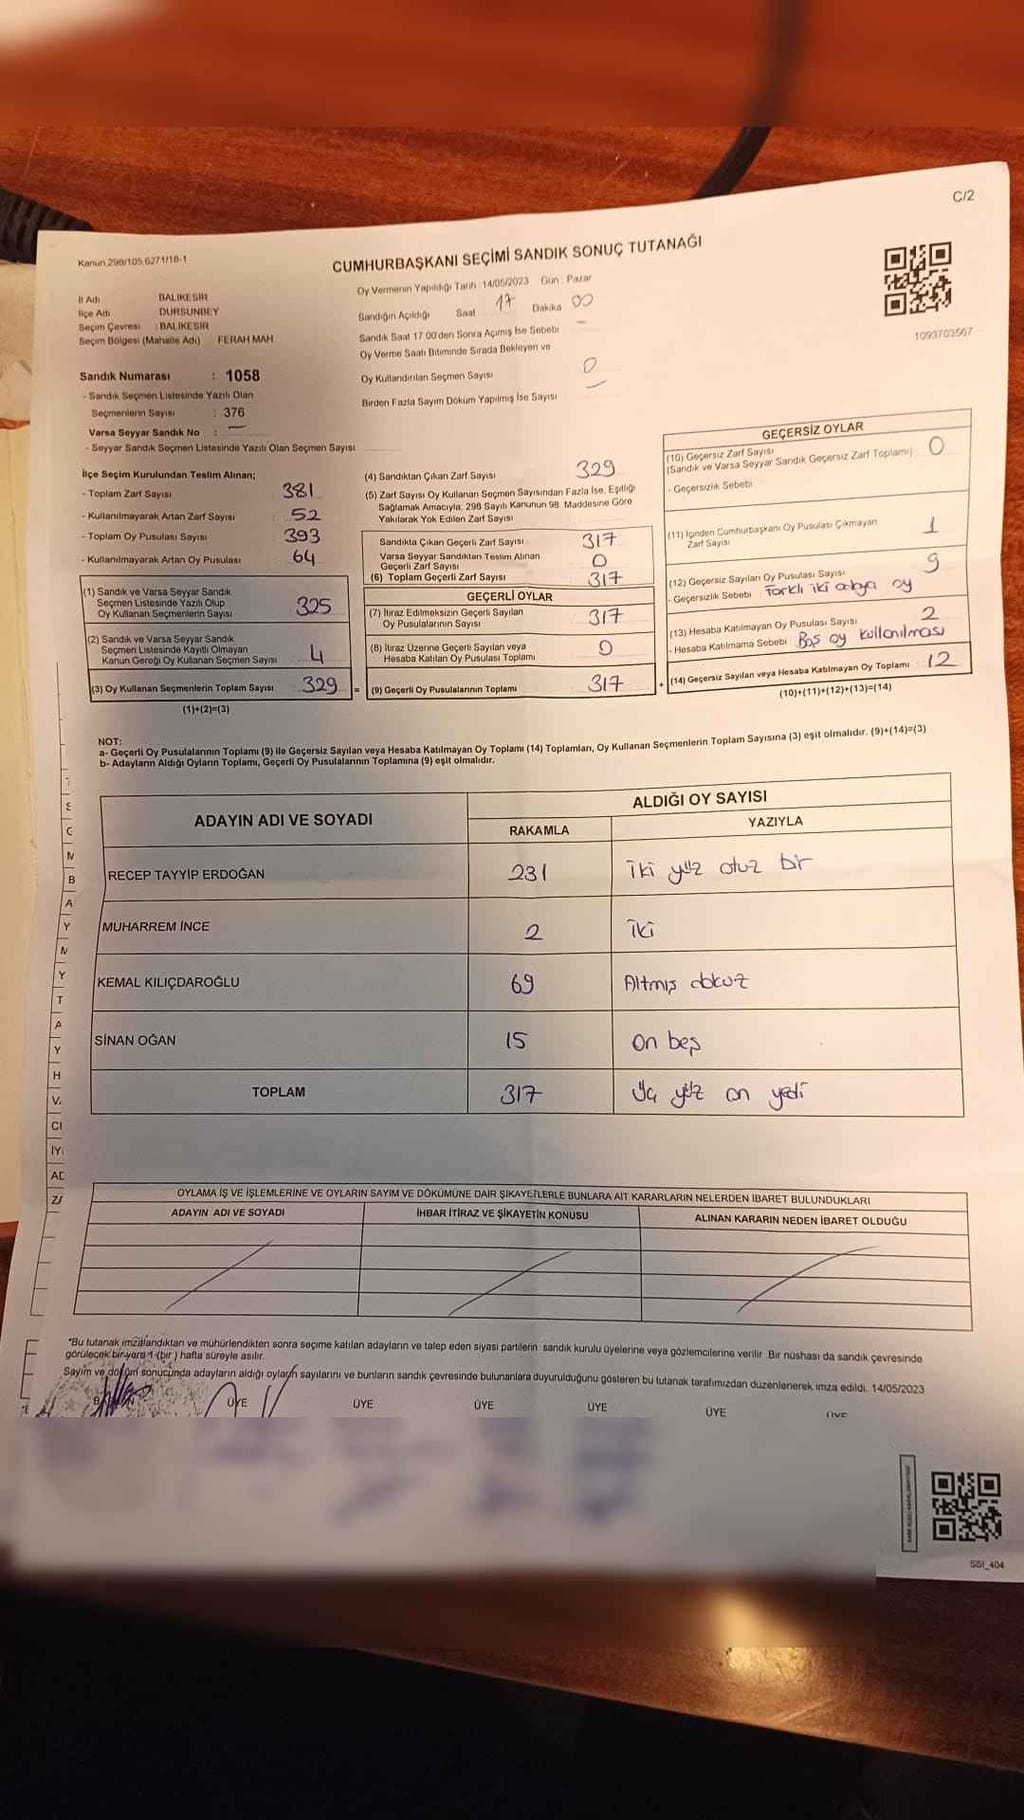 C/2
Kanun 298/105,6271/18-1
CUMHURBAŞKANI SEÇİMİ SANDIK SONUÇ TUTANAĞI
1093703567
İl Adı BALIKESİR
İlçe Adı DURSUNBEY
Seçim Çevresi : BALIKESİR
Seçim Bölgesi (Mahalle Adı) FERAH MAH
Oy Vermenin Yapıldığı Tarih 14/05/2023 Gün Pazar
Sandığın Açıldığı Saat 17 Dakika 00
Sandık Saat 17 00'den Sonra Açımış İse Sebebi -
Oy Verme Saati Bitiminde Sırada Bekleyen ve
Oy Kullandırılan Seçmen Sayısı 0
Birden Fazla Sayım Döküm Yapılmış İse Sayısı -
Sandık Numarası : 1058
- Sandık Seçmen Listesinde Yazılı Olan
Seçmenlerin Sayısı : 376
Varsa Seyyar Sandık No : -
- Seyyar Sandık Seçmen Listesinde Yazılı Olan Seçmen Sayısı
İlçe Seçim Kurulundan Teslim Alınan;
- Toplam Zarf Sayısı 381
- Kullanılmayarak Artan Zarf Sayısı : 52
- Toplam Oy Pusulası Sayısı : 393
- Kullanılmayarak Artan Oy Pusulası : 64
(1) Sandık ve Varsa Seyyar Sandık
Seçmen Listesinde Yazılı Olup
Oy Kullanan Seçmenlerin Sayısı 325
(2) Sandık ve Varsa Seyyar Sandık
Seçmen Listesinde Kayıtlı Olmayan
Kanun Gereği Oy Kullanan Seçmen Sayısı 4
(3) Oy Kullanan Seçmenlerin Toplam Sayısı 329
(1)+(2)=(3)
(4) Sandıktan Çıkan Zarf Sayısı 329
(5) Zarf Sayısı Oy Kullanan Seçmen Sayısından Fazla İse, Eşitliği
Sağlamak Amacıyla, 298 Sayılı Kanunun 98. Maddesine Göre
Yakılarak Yok Edilen Zarf Sayısı
Sandıkta Çıkan Geçerli Zarf Sayısı 317
Varsa Seyyar Sandıktan Teslim Alınan
Geçerli Zarf Sayısı 0
(6) Toplam Geçerli Zarf Sayısı 317
GEÇERLİ OYLAR
(7) İtiraz Edilmeksizin Geçerli Sayılan
Oy Pusulalarının Sayısı 317
(8) İtiraz Üzerine Geçerli Sayılan veya
Hesaba Katılan Oy Pusulası Toplamı 0
= (9) Geçerli Oy Pusulalarının Toplamı 317 +
GEÇERSİZ OYLAR
(10) Geçersiz Zarf Sayısı
(Sandık ve Varsa Seyyar Sandık Geçersiz Zarf Toplamı) 0
- Geçersizlik Sebebi
(11) İçinden Cumhurbaşkanı Oy Pusulası Çıkmayan
Zarf Sayısı 1
(12) Geçersiz Sayılan Oy Pusulası Sayısı 9
- Geçersizlik Sebebi Farklı iki adaya oy
(13) Hesaba Katılmayan Oy Pusulası Sayısı 2
- Hesaba Katılmama Sebebi Boş oy kullanılması
(14) Geçersiz Sayılan veya Hesaba Katılmayan Oy Toplamı 12
(10)+(11)+(12)+(13)=(14)
NOT:
a- Geçerli Oy Pusulalarının Toplamı (9) ile Geçersiz Sayılan veya Hesaba Katılmayan Oy Toplamı (14) Toplamları, Oy Kullanan Seçmenlerin Toplam Sayısına (3) eşit olmalıdır. (9)+(14)=(3)
b- Adayların Aldığı Oyların Toplamı, Geçerli Oy Pusulalarının Toplamına (9) eşit olmalıdır.
ADAYIN ADI VE SOYADI
ALDIĞI OY SAYISI
RAKAMLA YAZIYLA
RECEP TAYYİP ERDOĞAN 231 İki yüz otuz bir
MUHARREM İNCE 2 İki
KEMAL KILIÇDAROĞLU 69 Altmış dokuz
SİNAN OĞAN 15 On beş
TOPLAM 317 Üç yüz on yedi
OYLAMA İŞ VE İŞLEMLERİNE VE OYLARIN SAYIM VE DÖKÜMÜNE DAİR ŞİKAYETLERLE BUNLARA AİT KARARLARIN NELERDEN İBARET BULUNDUKLARI
ADAYIN ADI VE SOYADI İHBAR İTİRAZ VE ŞİKAYETİN KONUSU ALINAN KARARIN NEDEN İBARET OLDUĞU
*Bu tutanak imzalandıktan ve mühürlendikten sonra seçime katılan adayların ve talep eden siyasi partilerin sandık kurulu üyelerine veya gözlemcilerine verilir. Bir nüshası da sandık çevresinde
görülecek bir yere 1 (bir ) hafta süreyle asılır.
Sayım ve döküm sonucunda adayların aldığı oyların sayılarını ve bunların sandık çevresinde bulunanlara duyurulduğunu gösteren bu tutanak tarafımızdan düzenlenerek imza edildi. 14/05/2023
ÜYE ÜYE ÜYE ÜYE ÜYE ÜYE
SSI_404